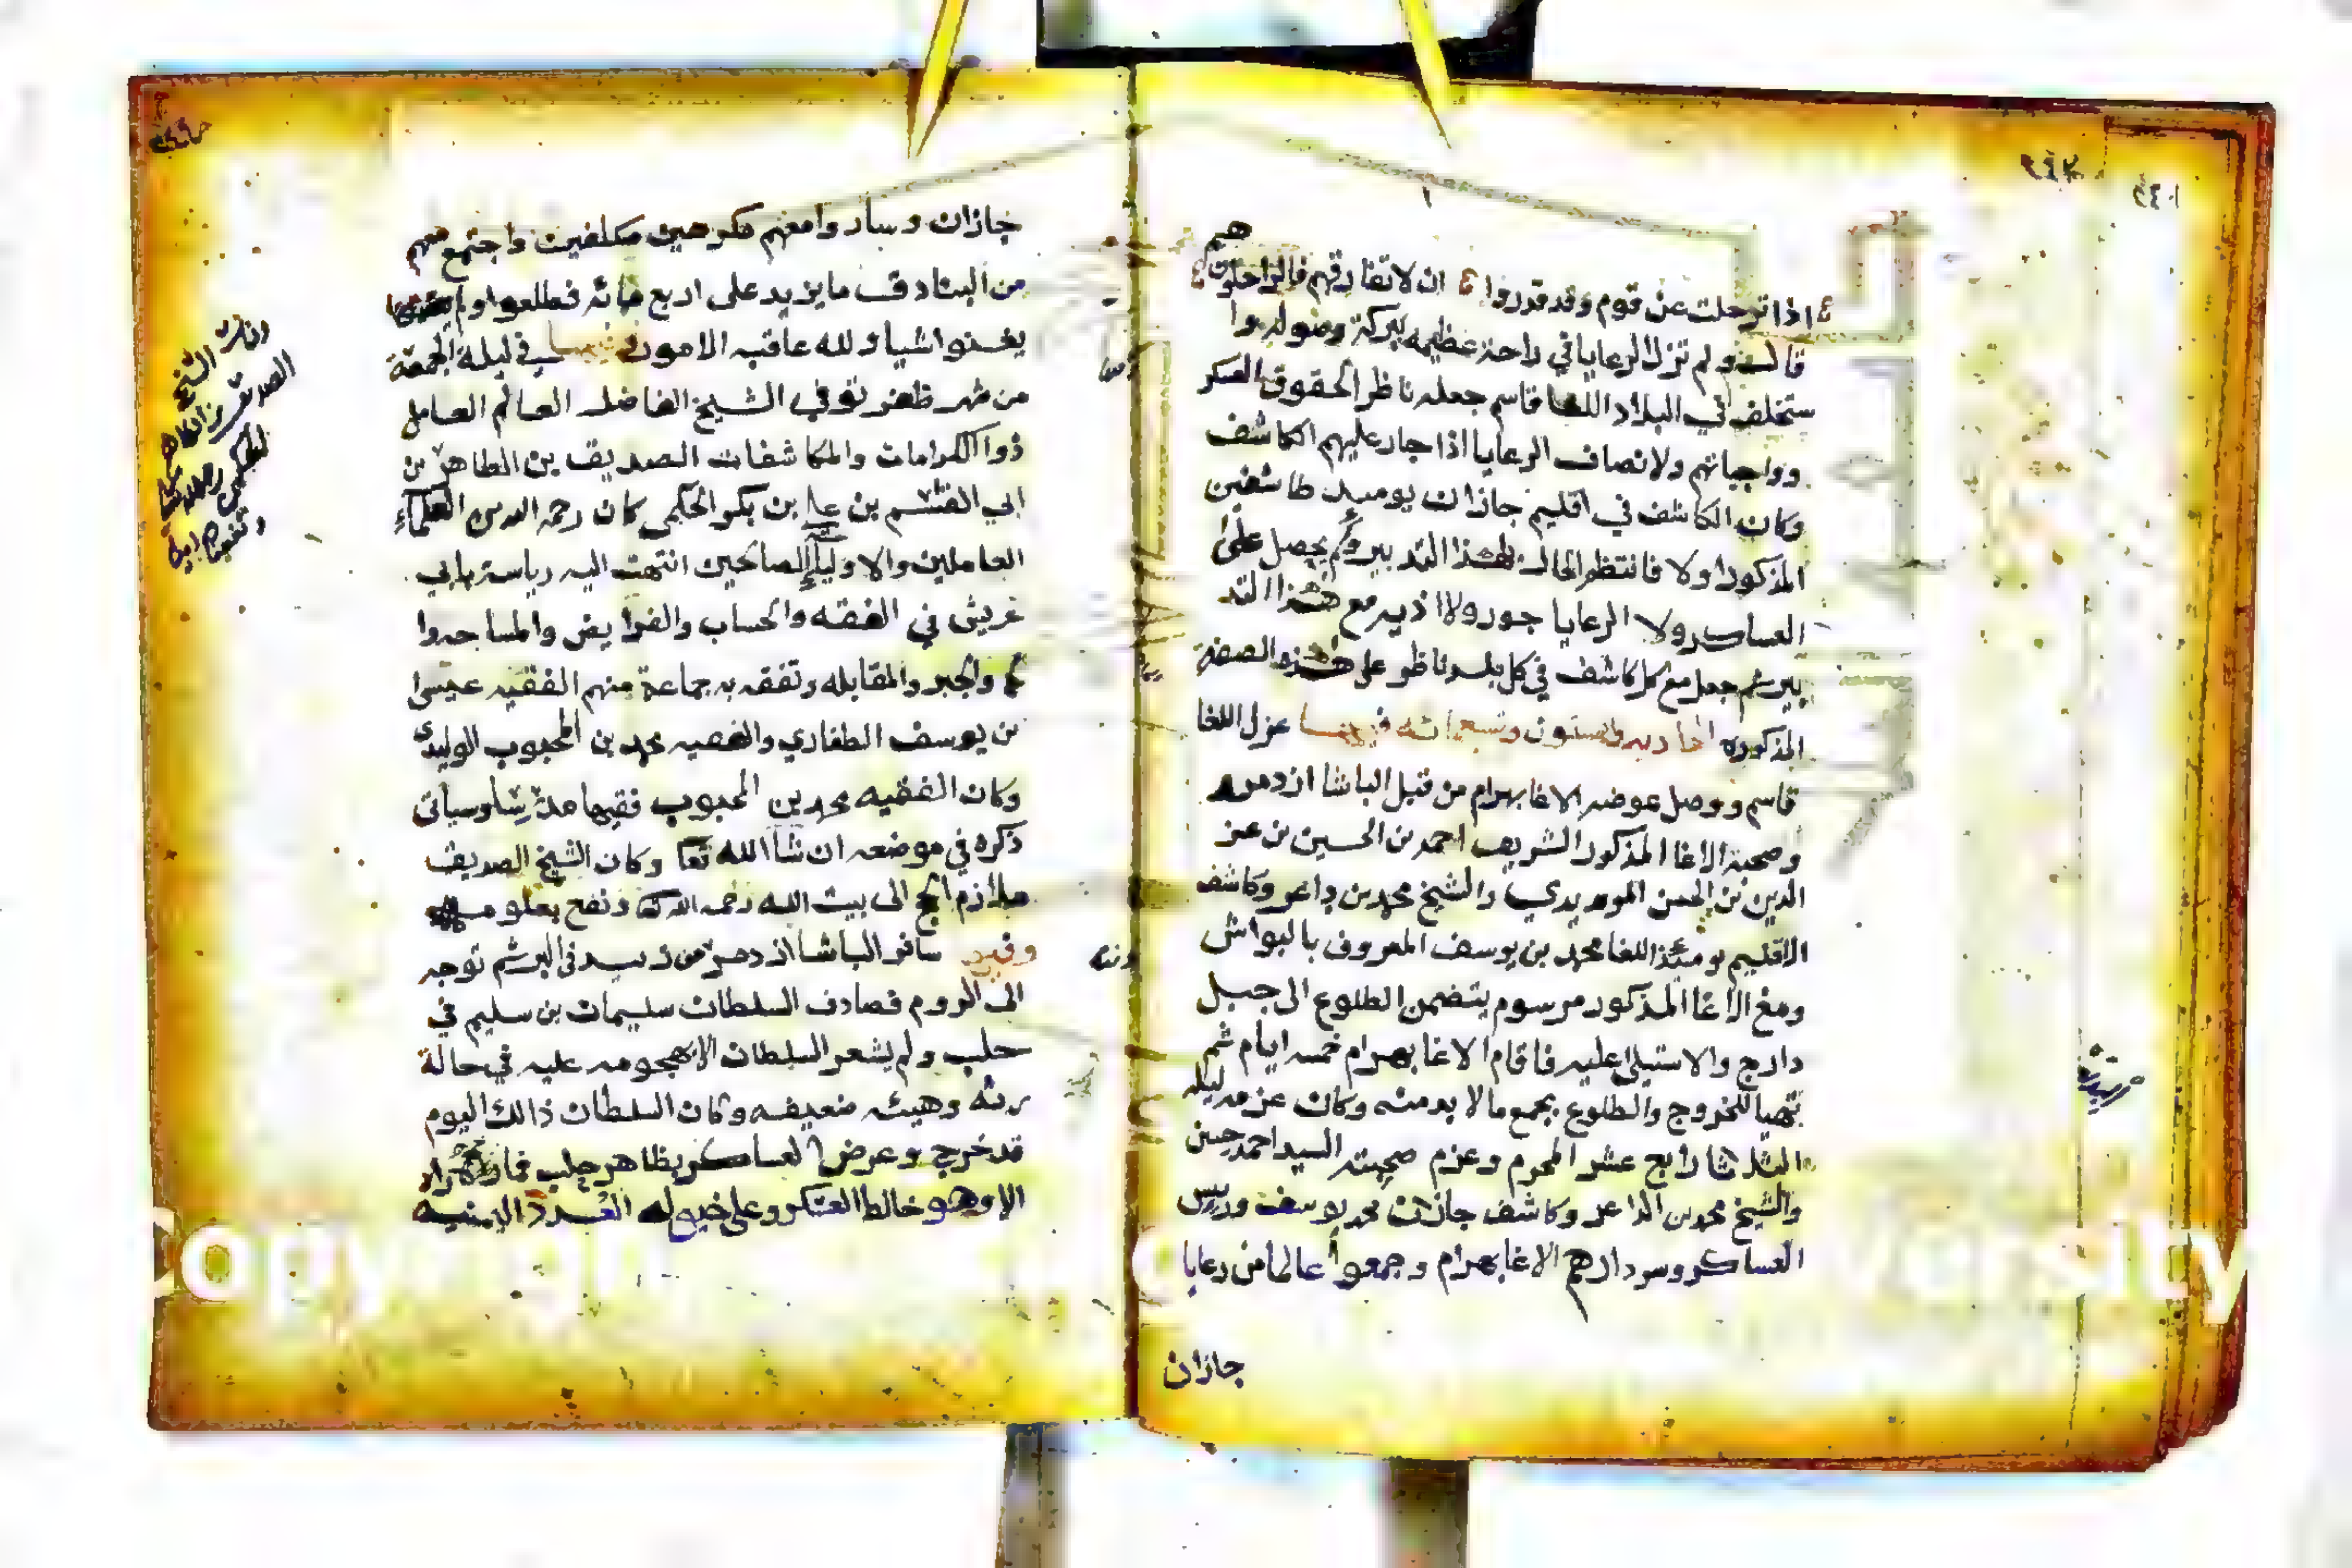 هم
اذا ترحلت عن قوم وقد قدروا ان لا تفارقهم فالراحلون
قال ولم تزل الرعايا في راحة عظيمه ببركة وصوله وا
ستخلف في البلاد اللغا قاسم جعله ناظر الحقوق العسكر
وواجباتهم ولانصاف الرعايا اذا جار عليهم الكاشف
وكان الكاشف في اقليم جازان يوميد
المذكور اولا فانتظم الحال بهذا التدبير ولم يحصل على
العساكر ولا الرعايا جور ولا اذيه مع هذا التد
بير ثم جعل مع كل كاشف في كل بلد ناظر على هذه الصفة
المذكوره الحاديه وستون وتسعمائه فيها عزل اللغا
قاسم ووصل عوضه الاغا بهرام من قبل الباشا ازدمر
وصحبة الاغا المذكور الشريف احمد بن الحسين بن عز
الدين بن الحسن المويدي والشيخ محمد بن داعر وكاشف
الاقليم يومئذ اللغا محمد بن يوسف المعروف بالبواش
ومع الاغا المذكور مرسوم يتضمن الطلوع الى جبل
دارج والاستيلى عليه فاقام الاغا بهرام خمسه ايام ثم
تهيا للخروج والطلوع بجمع ما لا بد منه وكان عزمه ليلة
الثلاثا رابع عشر المحرم وعزم صحبته السيد احمد حسين
والشيخ محمد بن الداعر وكاشف جازان محمد يوسف وريس
العساكر وسردارهم الاغا بهرام وجمعوا عالما من رعايا
جازان
جازان وساروا معهم مكرهين مكلفين واجتمع معهم
من البنادق ما يزيد على اربع مائه فطلعوا ولم
يغنوا شيا ولله عاقبه الامور فيها في ليلة الجمعة
من شهر ظفر توفي الشيخ الفاضل العالم العامل
ذوا الكرامات والمكاشفات الصديق بن الطاهر بن
ابي القسم بن علي بن بكر الحكمي كان رحمه الله من العلماء
العاملين والاولياء الصالحين انتهت اليه رياسة بابي
عريش في الفقه والحساب والفرايض والمساحه وا
لجبر والمقابله وتفقه به جماعة منهم الفقيه عيسى
بن يوسف الطفاري والفقيه محمد بن المحبوب الوليدي
وكان الفقيه محمد بن المحبوب فقيها وسياتي
ذكره في موضعه ان شا الله تعا وكان الشيخ الصديق
ملازم الحج الى بيت الله رحمه الله ونفع بعلومه
وفيها سافر الباشا ازدمر من زبيد في البر ثم توجه
الى الروم فصادف السلطان سليمان بن سليم في
حلب ولم يشعر السلطان الا بهجومه عليه في حالة
رثه وهيئه ضعيفه وكان السلطان ذالك اليوم
قد خرج وعرض العساكر بظاهر حلب فما
الا وهو خالط العسكر وعلى خيوله العدة اليمنيه
وفات الشيخ
الصديق بن الطاهر
الحكمي رحمه الله